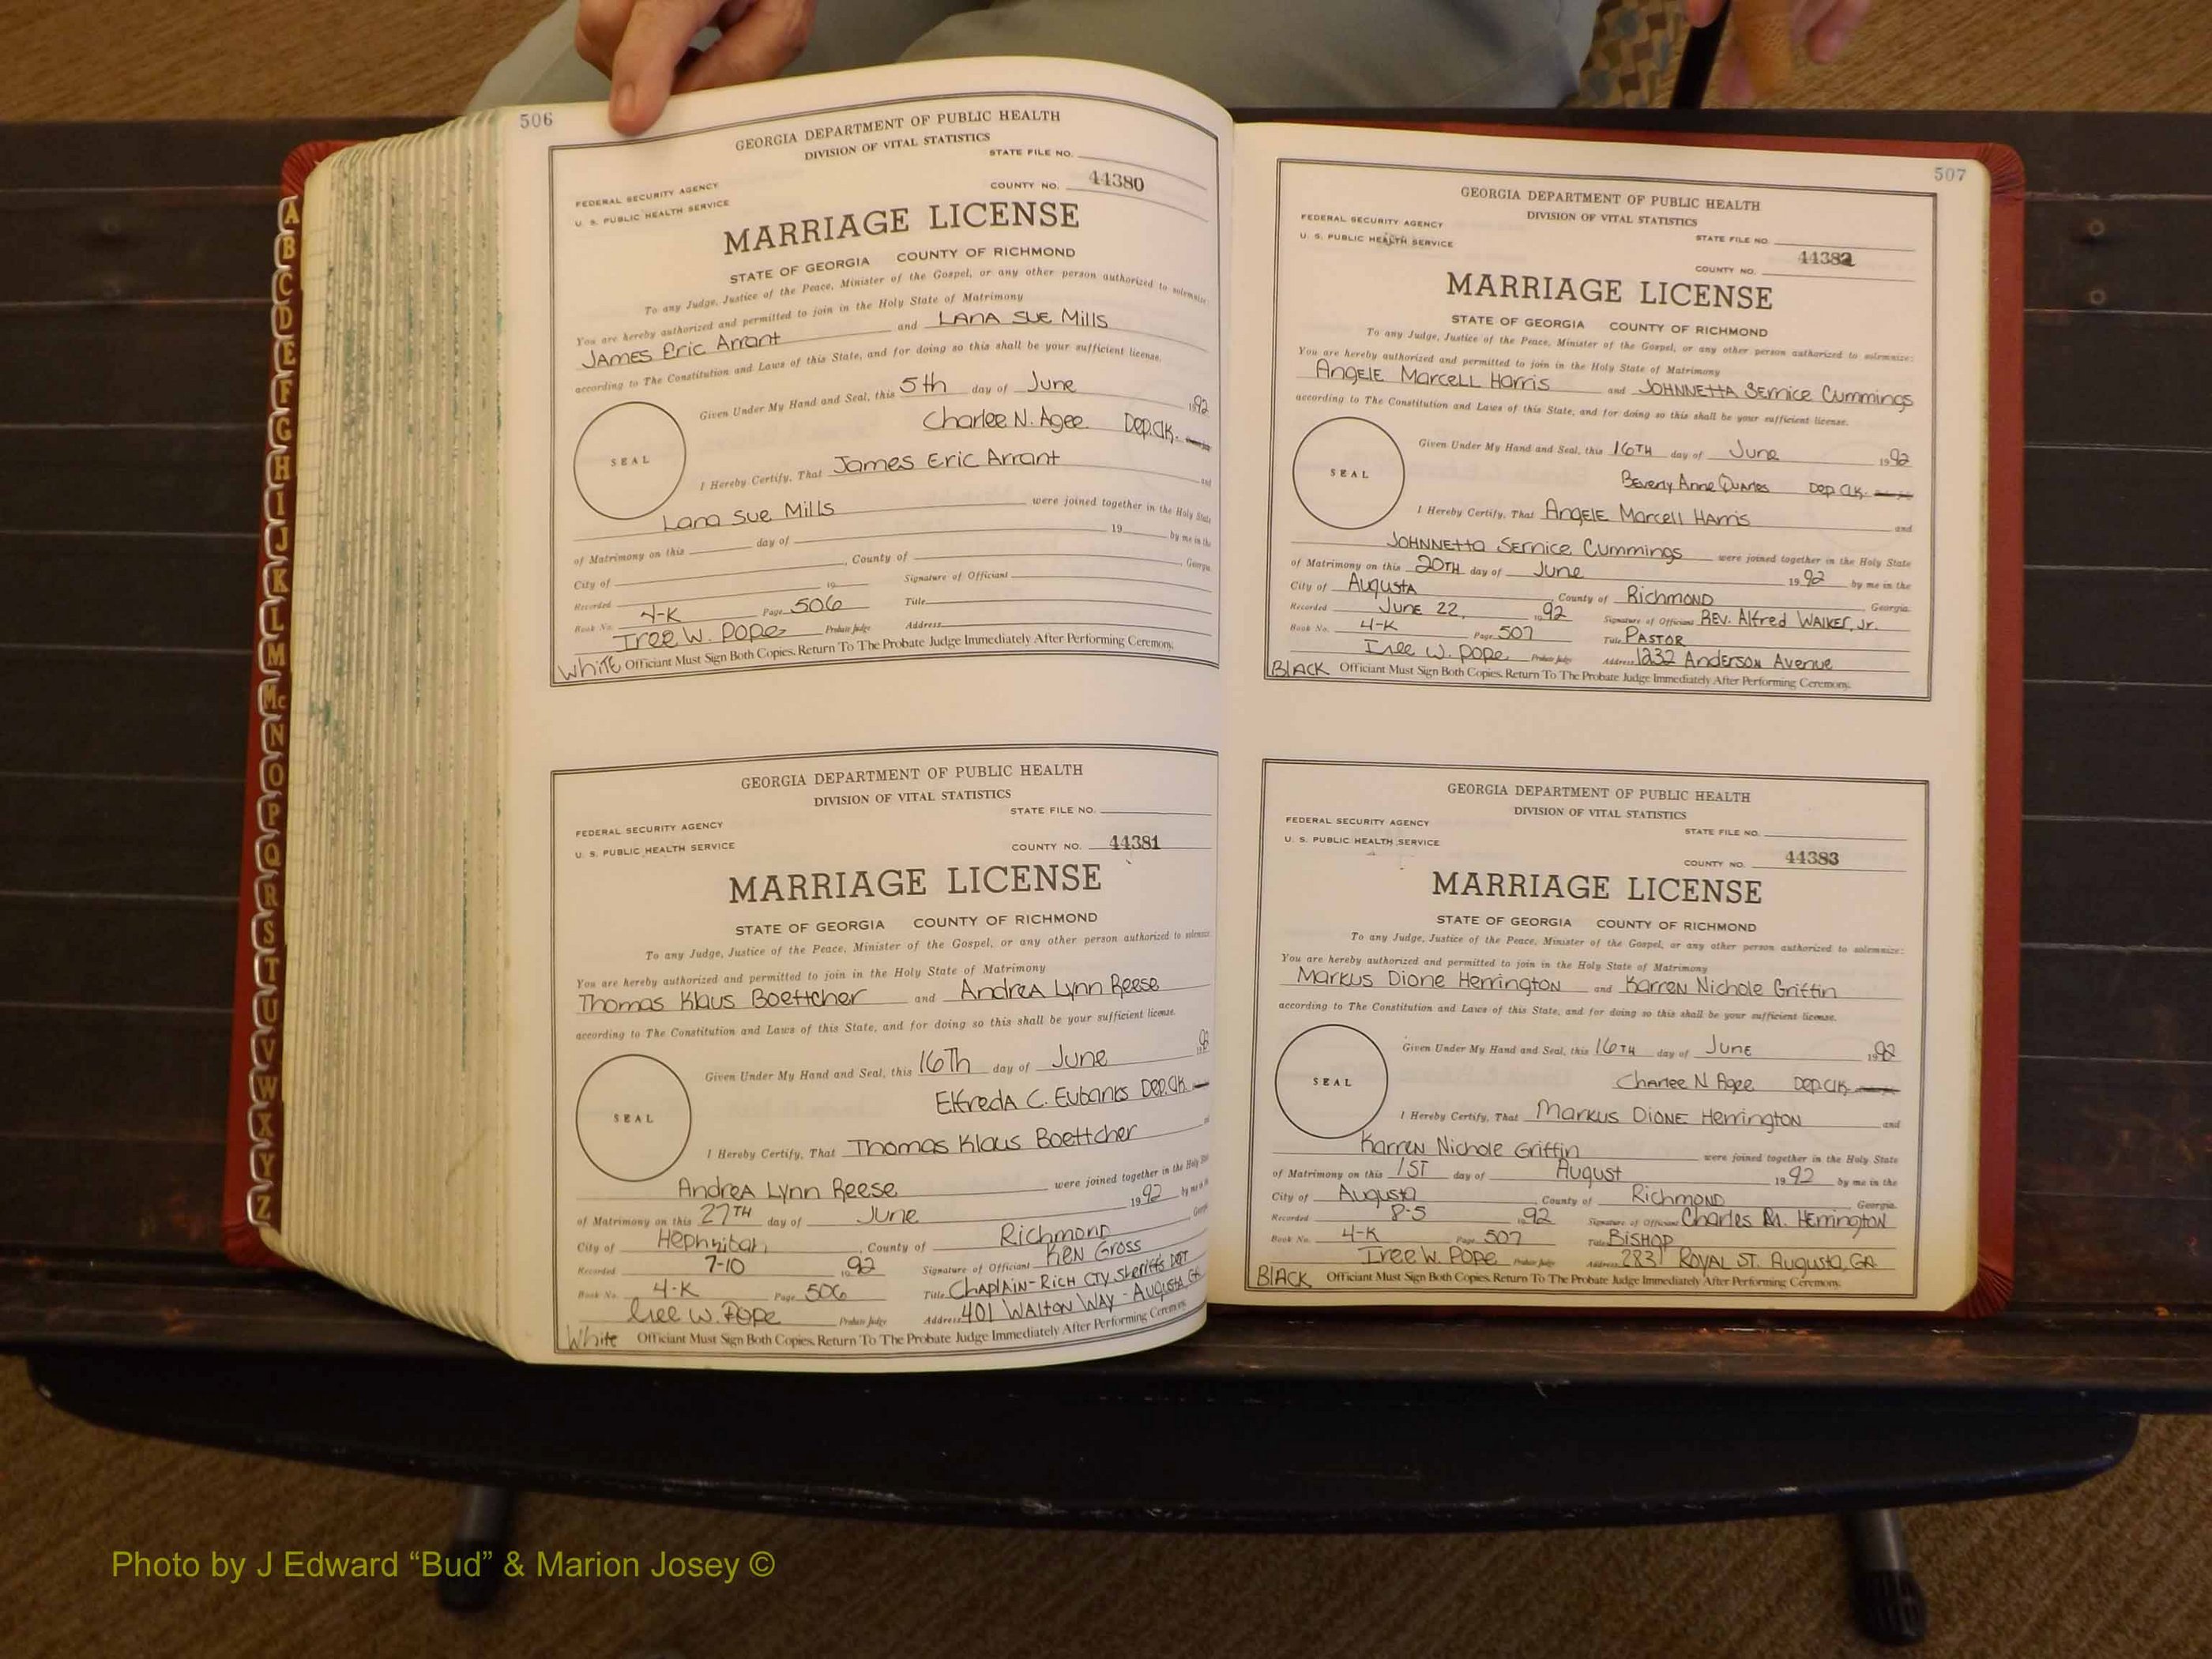 A
B
C
D
E
F
G
H
I
J
K
L
M
Mc
N
O
P
Q
R
S
T
U
V
W
X
Y
Z
506
GEORGIA DEPARTMENT OF PUBLIC HEALTH
DIVISION OF VITAL STATISTICS
STATE FILE NO.
FEDERAL SECURITY AGENCY
U. S. PUBLIC HEALTH SERVICE
COUNTY NO. 44380
MARRIAGE LICENSE
STATE OF GEORGIA COUNTY OF RICHMOND
To any Judge, Justice of the Peace, Minister of the Gospel, or any other person authorized to solemnize:
You are hereby authorized and permitted to join in the Holy State of Matrimony
James Eric Arrant and Lana Sue Mills
according to The Constitution and Laws of this State, and for doing so this shall be your sufficient license.
Given Under My Hand and Seal, this 5th day of June 1992
Charlee N. Agee Dep.Clk.
SEAL
I Hereby Certify, That James Eric Arrant and
Lana Sue Mills were joined together in the Holy State
of Matrimony on this day of 19 by me in the
City of , County of , Georgia.
Recorded 19 Signature of Officiant
Book No. 4-K Page 506 Title
Iree W. Pope Probate Judge Address
White Officiant Must Sign Both Copies. Return To The Probate Judge Immediately After Performing Ceremony.
GEORGIA DEPARTMENT OF PUBLIC HEALTH
DIVISION OF VITAL STATISTICS
STATE FILE NO.
FEDERAL SECURITY AGENCY
U. S. PUBLIC HEALTH SERVICE
COUNTY NO. 44381
MARRIAGE LICENSE
STATE OF GEORGIA COUNTY OF RICHMOND
To any Judge, Justice of the Peace, Minister of the Gospel, or any other person authorized to
You are hereby authorized and permitted to join in the Holy State of Matrimony
Thomas Klaus Boettcher and Andrea Lynn Reese
according to The Constitution and Laws of this State, and for doing so this shall be your sufficient license.
Given Under My Hand and Seal, this 16Th day of June
Elfreda C. Eubanks Dep.Clk.
SEAL
I Hereby Certify, That Thomas Klaus Boettcher
Andrea Lynn Reese were joined together in the Holy State
of Matrimony on this 27TH day of June 1992 by me in
City of Hephzibah , County of Richmond
Recorded 7-10 1992 Signature of Officiant Ken Gross
Book No. 4-K Page 506 Title Chaplain-Rich Cty Sheriff's Dept
Iree W. Pope Probate Judge Address 401 Walton Way - Augusta, GA
White Officiant Must Sign Both Copies. Return To The Probate Judge Immediately After Performing Ceremony.
507
GEORGIA DEPARTMENT OF PUBLIC HEALTH
DIVISION OF VITAL STATISTICS
FEDERAL SECURITY AGENCY
U. S. PUBLIC HEALTH SERVICE
STATE FILE NO.
COUNTY NO. 44382
MARRIAGE LICENSE
STATE OF GEORGIA COUNTY OF RICHMOND
To any Judge, Justice of the Peace, Minister of the Gospel, or any other person authorized to solemnize:
You are hereby authorized and permitted to join in the Holy State of Matrimony
Angele Marcell Harris and Johnnetta Sernice Cummings
according to The Constitution and Laws of this State, and for doing so this shall be your sufficient license.
Given Under My Hand and Seal, this 16TH day of June 1992
Beverly Anne Quarles Dep Clk.
SEAL
I Hereby Certify, That Angele Marcell Harris and
Johnnetta Sernice Cummings were joined together in the Holy State
of Matrimony on this 20TH day of June 1992 by me in the
City of Augusta , County of Richmond , Georgia.
Recorded June 22, 1992 Signature of Officiant Rev. Alfred Walker, Jr.
Book No. 4-K Page 507 Title Pastor
Iree W. Pope Probate Judge Address 1232 Anderson Avenue
Black Officiant Must Sign Both Copies. Return To The Probate Judge Immediately After Performing Ceremony.
GEORGIA DEPARTMENT OF PUBLIC HEALTH
DIVISION OF VITAL STATISTICS
FEDERAL SECURITY AGENCY
U. S. PUBLIC HEALTH SERVICE
STATE FILE NO.
COUNTY NO. 44383
MARRIAGE LICENSE
STATE OF GEORGIA COUNTY OF RICHMOND
To any Judge, Justice of the Peace, Minister of the Gospel, or any other person authorized to solemnize:
You are hereby authorized and permitted to join in the Holy State of Matrimony
Markus Dione Herrington and Karren Nichole Griffin
according to The Constitution and Laws of this State, and for doing so this shall be your sufficient license.
Given Under My Hand and Seal, this 16TH day of June 1992
Charlee N Agee Dep.Clk.
SEAL
I Hereby Certify, That Markus Dione Herrington and
Karren Nichole Griffin were joined together in the Holy State
of Matrimony on this 1ST day of August 1992 by me in the
City of Augusta , County of Richmond , Georgia.
Recorded 8-5 1992 Signature of Officiant Charles M. Herrington
Book No. 4-K Page 507 Title Bishop
Iree W. Pope Probate Judge Address 2831 Royal St. Augusta, GA
Black Officiant Must Sign Both Copies. Return To The Probate Judge Immediately After Performing Ceremony.
Photo by J Edward “Bud” & Marion Josey ©